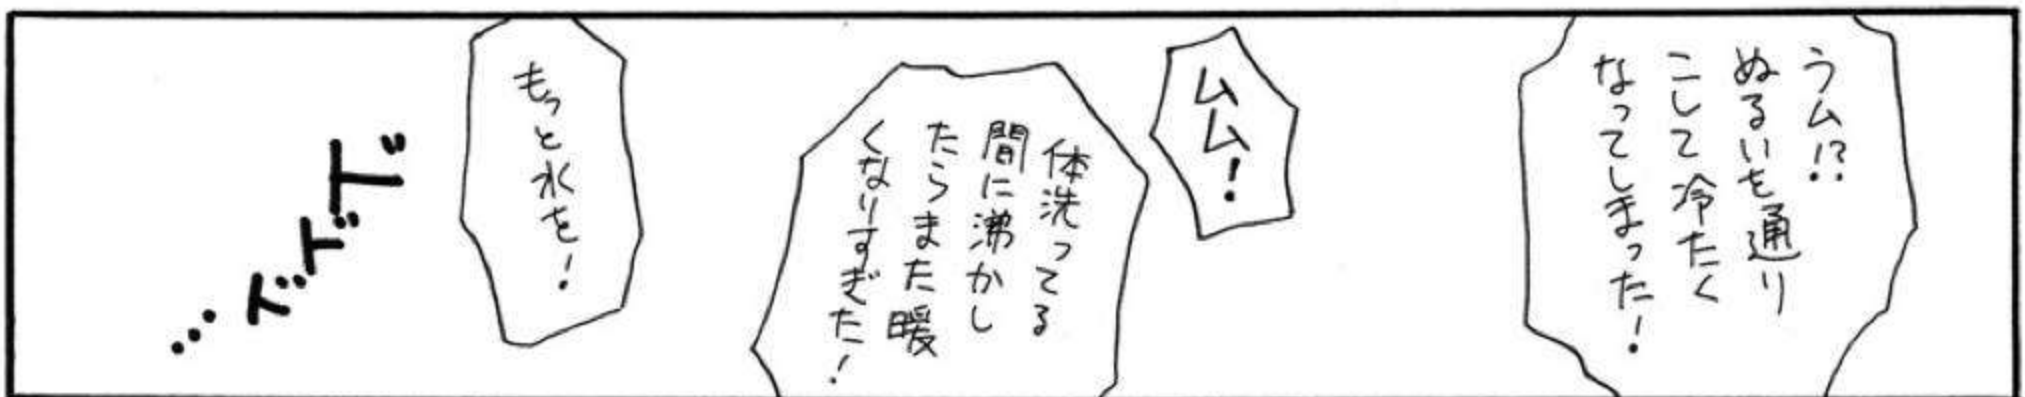 うム!?
ぬるいを通り
こして冷たく
なってしまった!
ムム!
体洗ってる
間に沸かし
たらまた暖
くなりすぎた!
もっと水を!
ドドド…